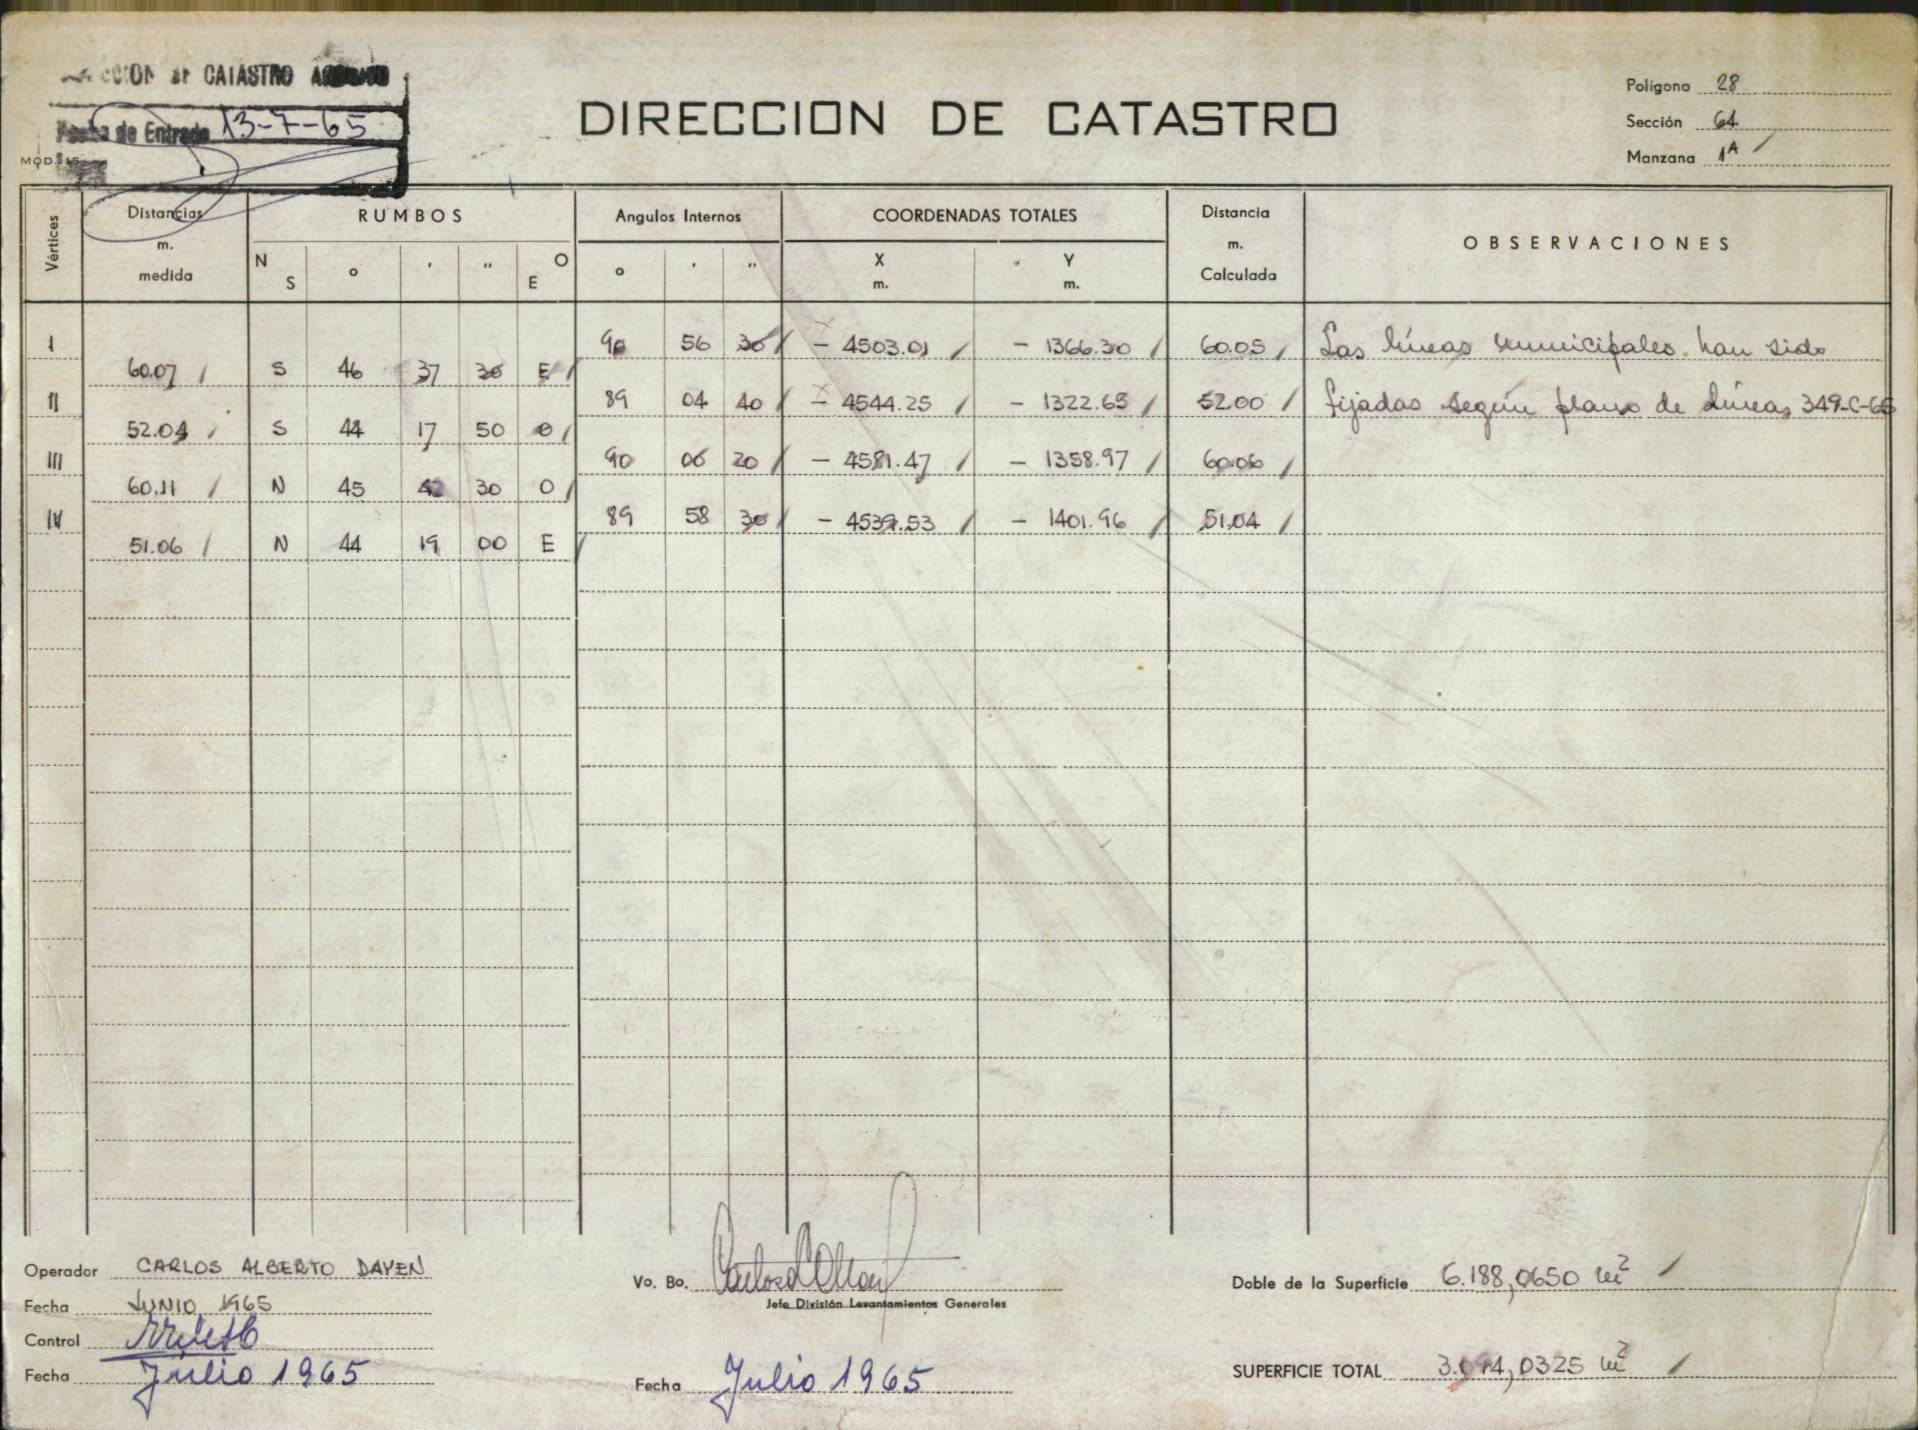 DE CATASTRO
Fecha de Entrada 13-7-65
MOD. 15
DIRECCION DE CATASTRO
Polígono 28
Sección 64
Manzana 1A
Vértices
Distancias
m.
medida
RUMBOS
N S ° ' '' O E
Angulos Internos
° ' ''
COORDENADAS TOTALES
X
m.
Y
m.
Distancia
m.
Calculada
OBSERVACIONES
I 90 56 30 - 4503.01 - 1366.30 60.05 Las líneas municipales han sido
60.07 S 46 37 30 E
II 89 04 40 - 4544.25 - 1322.65 52.00 fijadas según plano de Líneas 349-C-65
52.04 S 44 17 50 O
III 90 06 20 - 4581.47 - 1358.97 60.06
60.11 N 45 42 30 O
IV 89 58 30 - 4539.53 - 1401.96 51.04
51.06 N 44 19 00 E
Operador CARLOS ALBERTO DAYEN
Fecha JUNIO 1965
Control
Fecha Julio 1965
Vo. Bo.
Jefe División Levantamientos Generales
Fecha Julio 1965
Doble de la Superficie 6.188,0650 m²
SUPERFICIE TOTAL 3.094,0325 m²